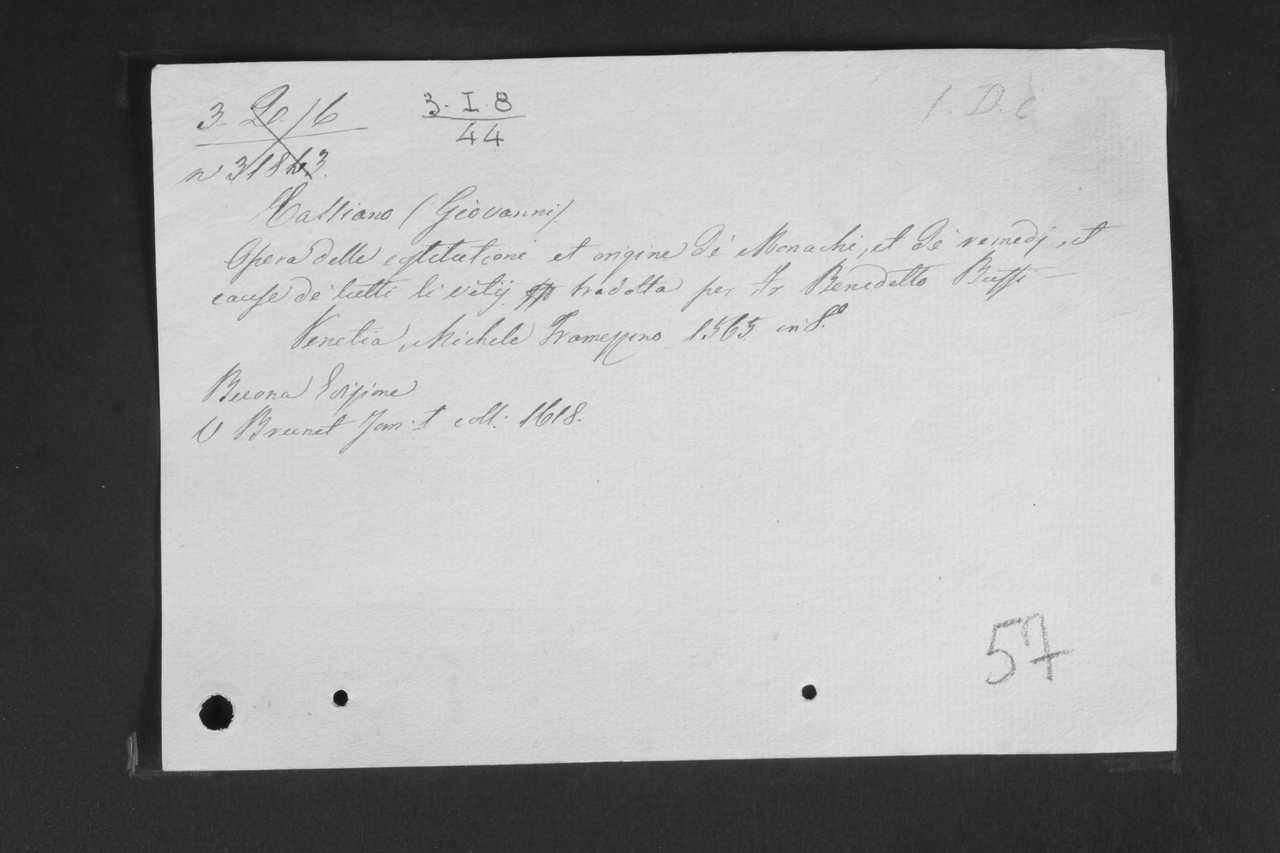 3. I. 8
44
Cassiano (Giovanni)
Opera delle costitutioni et origine de' Monachi, et de' remedj, et
cause de tutti li vitij tradotta per Fr Benedetto Buffi
Venetia, Michele Tramezzino 1563 in 8.º
Buona Edizione
V Brunet Tom: I coll: 1618.
1. D. c
57